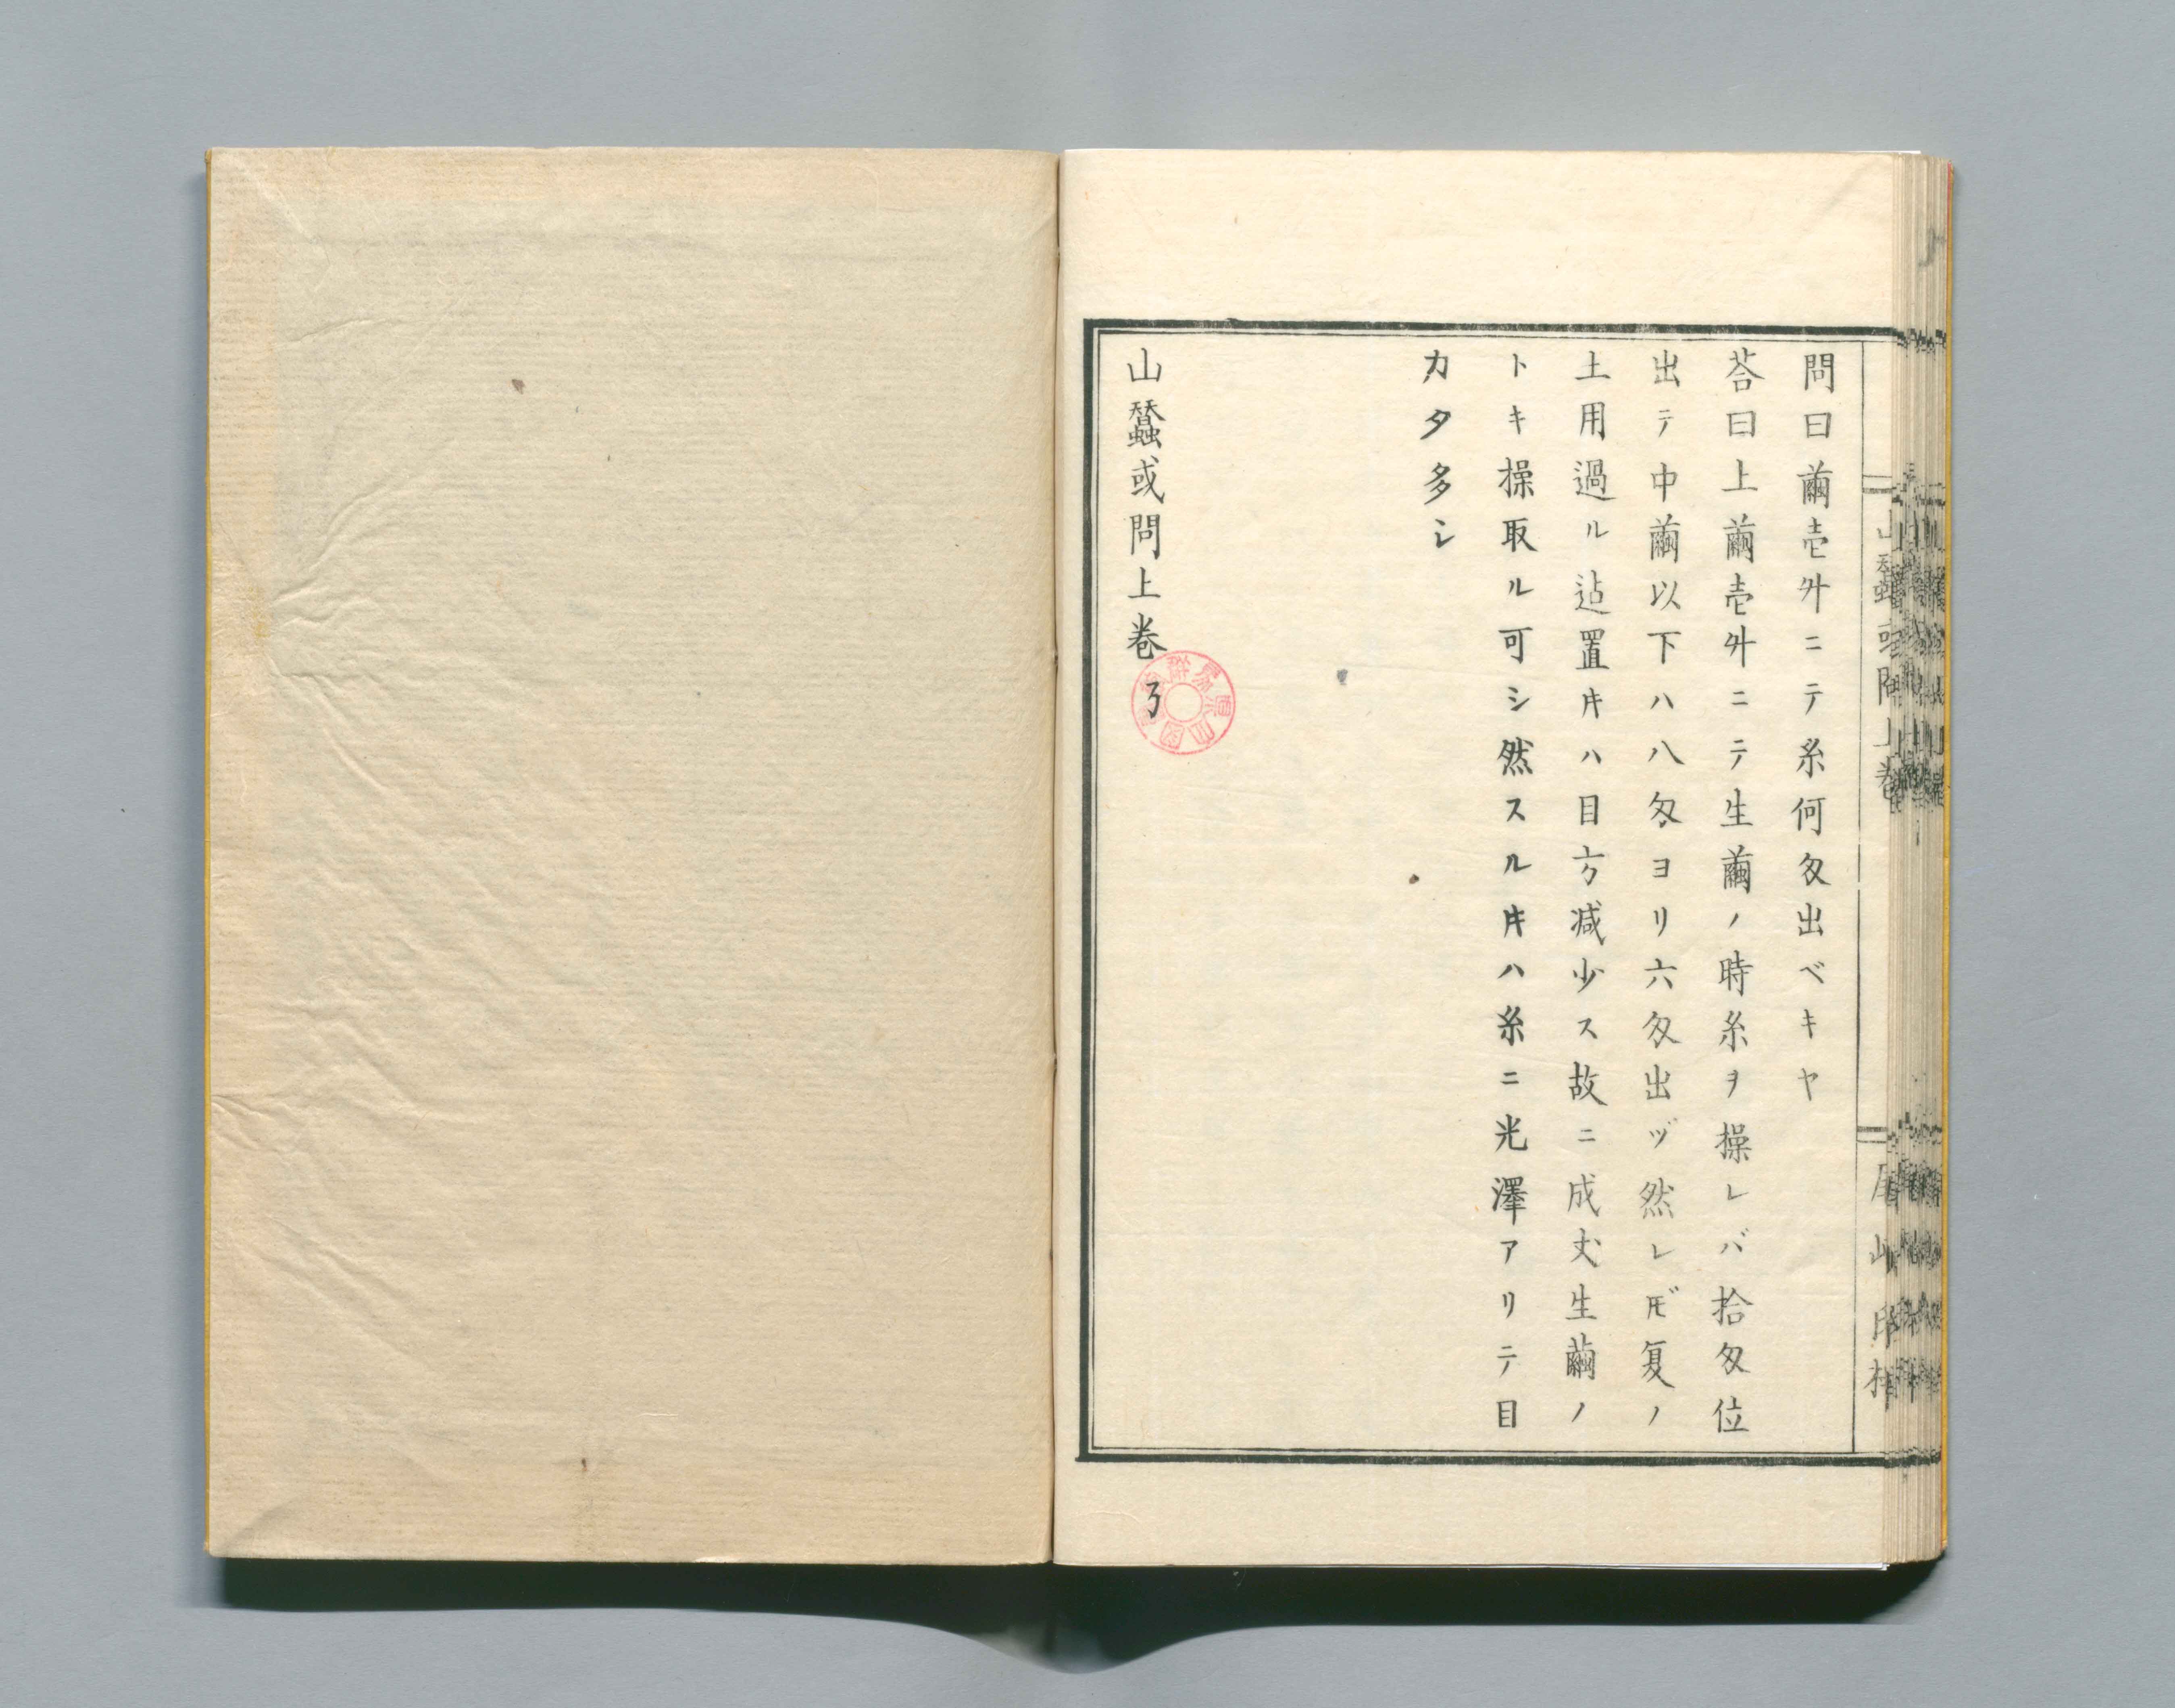 問曰繭壱升ニテ糸何匁出ベキヤ
荅曰上繭壱升ニテ生繭ノ時糸ヲ操レバ拾匁位
出テ中繭以下ハ八匁ヨリ六匁出ヅ然レ𪜈复ノ
土用過ル迠置𪜈ハ目方减少ス故ニ成𠀋生繭ノ
トキ操取ル可シ然スル𪜈ハ糸ニ光澤アリテ目
カタ多シ
山蠶或問上巻